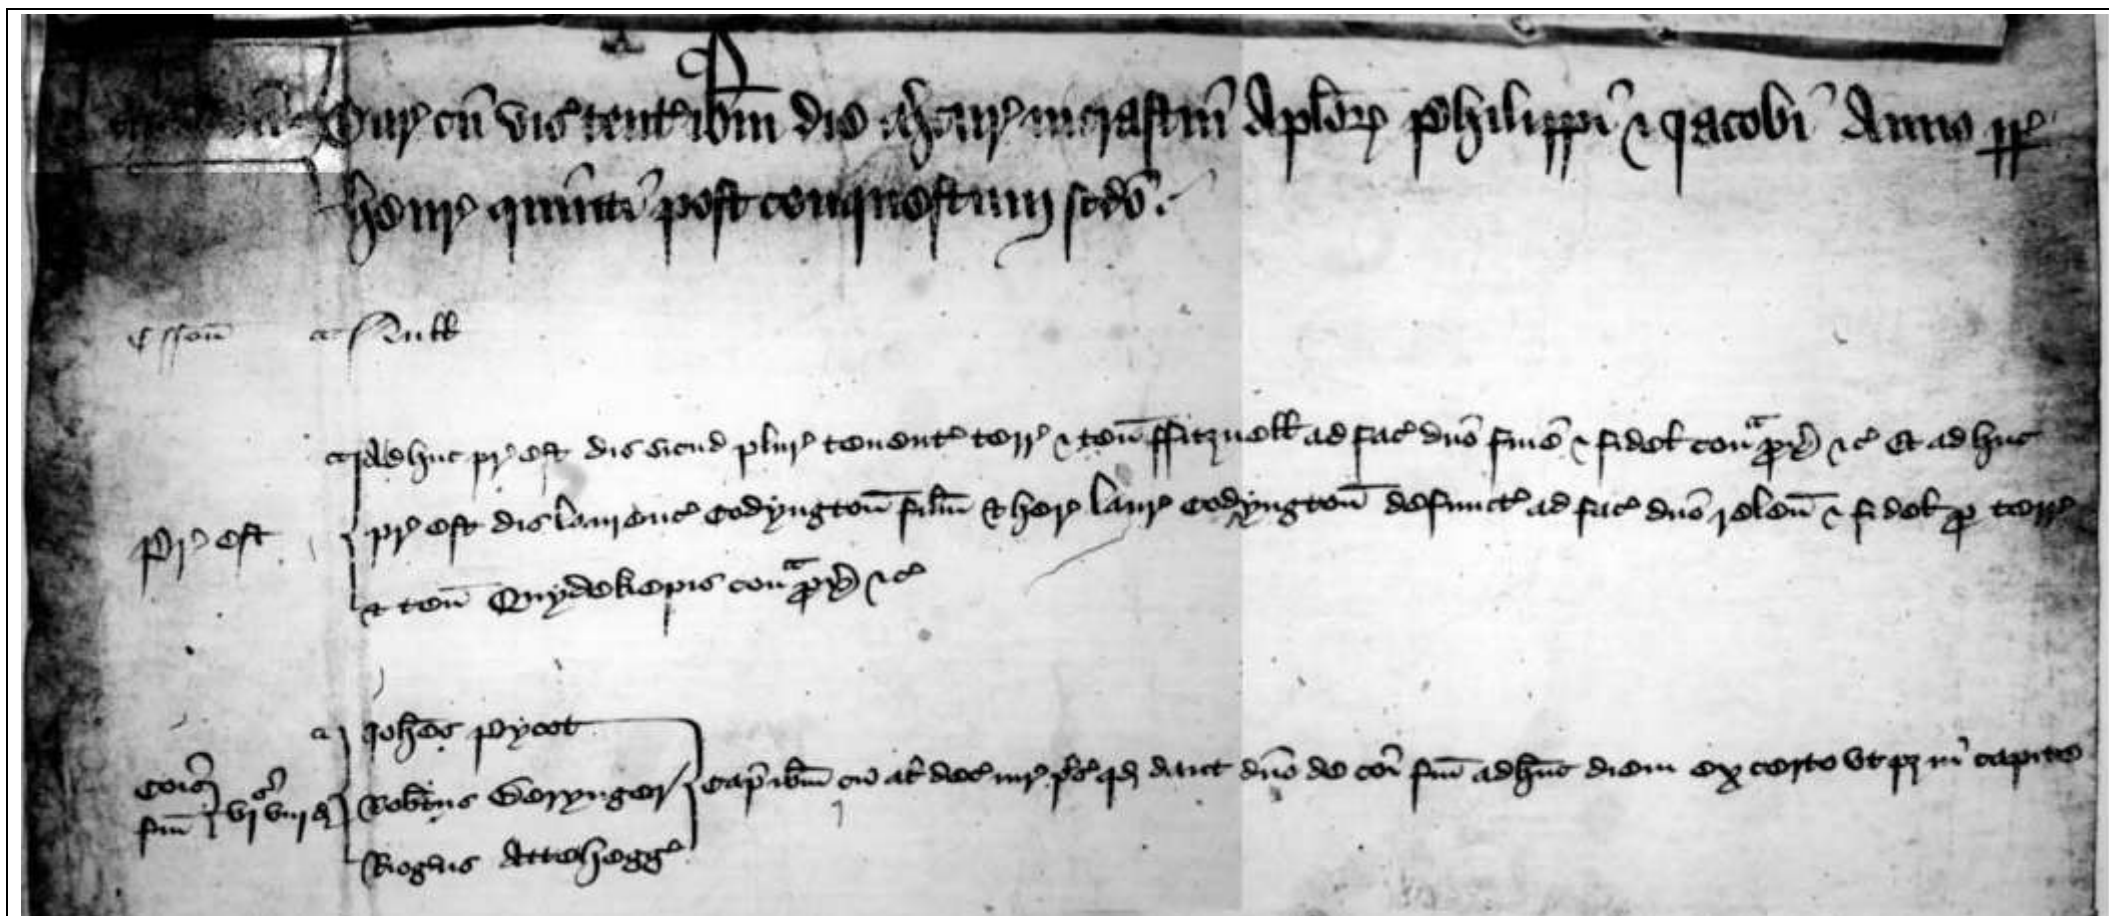 Cur' cu' vis' tent' ib'm die m'cur' in c'astin' Ap'lor' Philippi & Jacobi Anno rr'
Henr' quinti post conquestum scdo'.
Esson' Null
Adhuc pr' est dis' sicud plur' tenent' terr' & ten' ffitznell ad fac' dno' fine' & fidel' cont'a pr' &c' Et adhuc
Pr' est pr' est dis' Laurenc' Codyngton' filiu' & her' Laur' Codyngton' defunct' ad fac' dno' releu' & fidel' pro terr'
& ten' Quydekepis cont'a pr' &c'
Joh'es Pycot
Co'is fin' vj s' viij d Rob'tus Gerynger Cap' ib'm cu' dec' p's' q'd dant d'no de co'i fin' ad hunc diem ex certo ut p' in capite
Rog'us Attehegg'